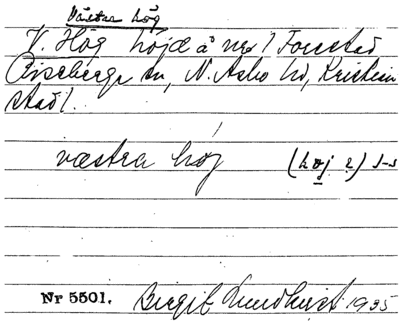 Västra hög
V. Hög höjd å nr 1 Forestad
Riseberga sn, N. Åsbo hd, Kristian
stad l.
væstra høj (høj 2) s-s
Nr 5501. Birgit Lundkvist 1935